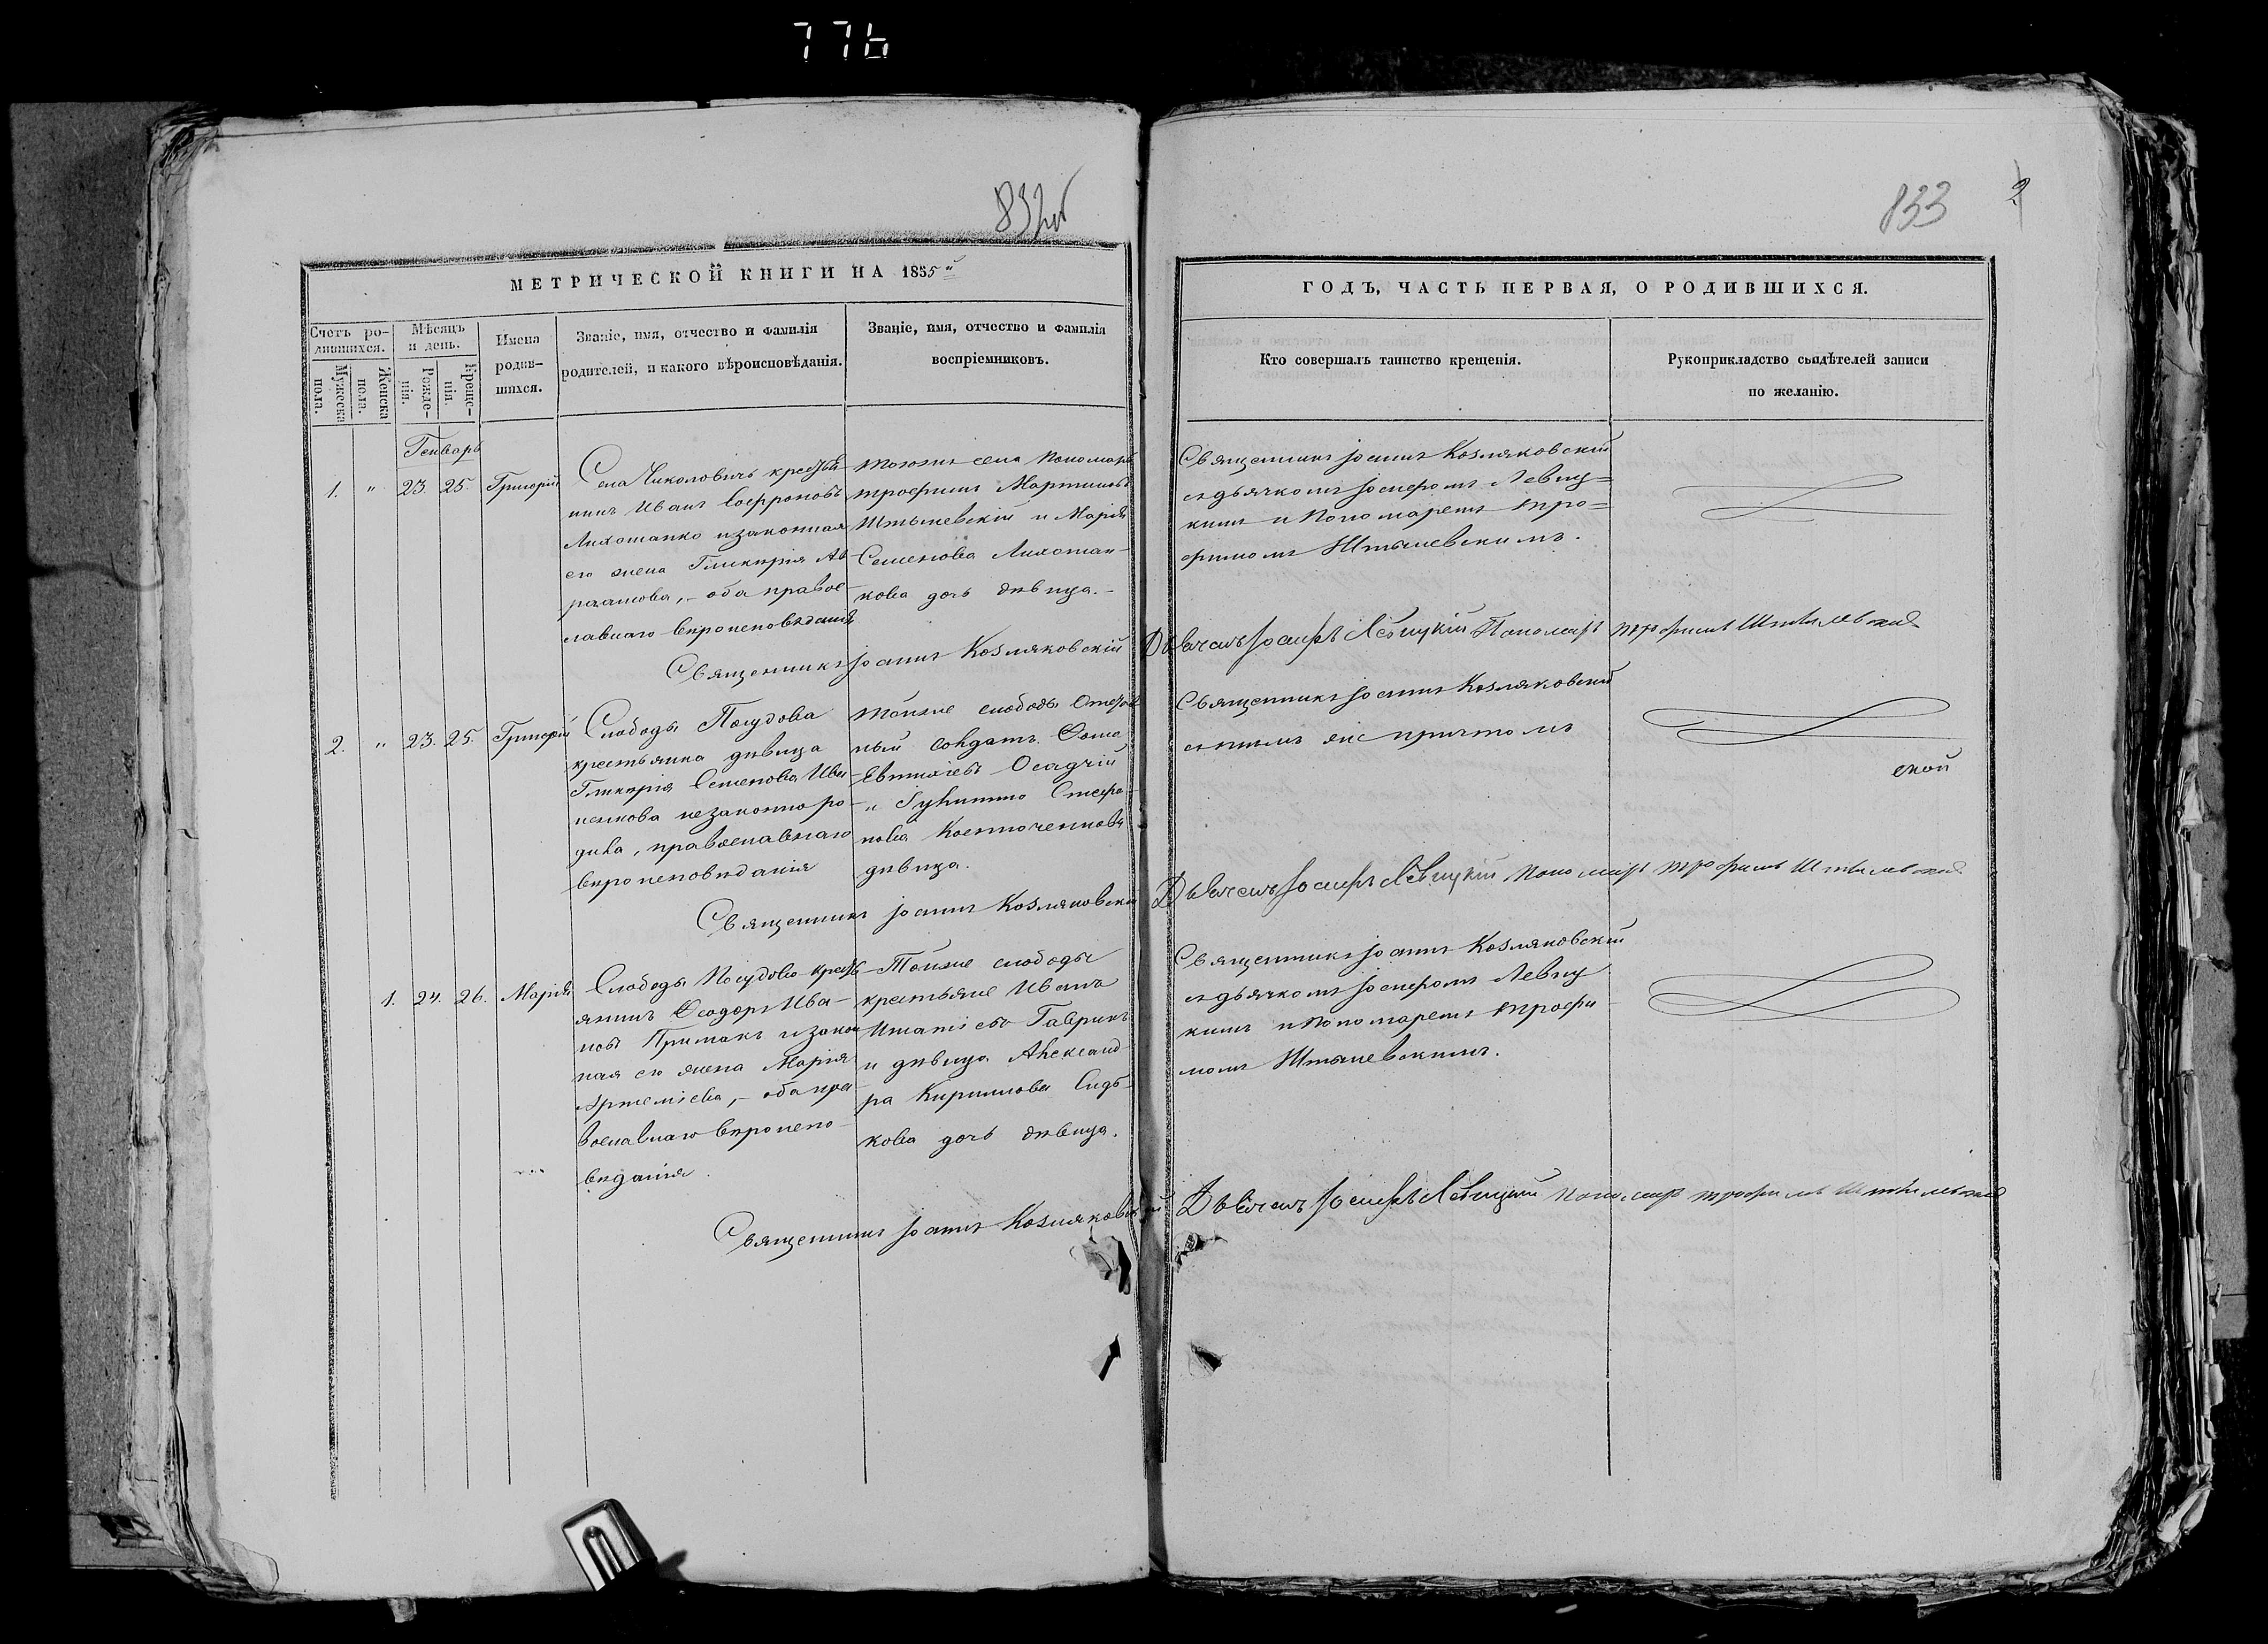 776
832об
МЕТРИЧЕСКОЙ КНИГИ НА 1855й
Счетъ ро-
дившихся.
Мужеска
пола.
Женска
пола.
Мѣсяцъ
и день.
Рожде-
нія.
Креще-
нія.
Имена
родив-
шихся.
Званіе, имя, отчество и фамилія
родителей, и какого вѣроисповѣданія.
Званіе, имя, отчество и фамилія
воспріемниковъ.
Генварь
1. " 23. 25. Григорій
Села Чиколовичь крестья-
нинъ Иванъ Софроновъ
Лихошапко и законная
его жена Гликирія Ав-
раамова, - оба правос-
лавнаго вѣроисповѣданія
тогожъ села пономарь
трофимъ Мартиновъ
Штылевскій и Марія
Семенова Лихошап-
кова дочь дѣвица.-
Священникъ Іоаннъ Козляковскій
2. " 23. 25. Григорій
Слободы Посудова
крестьянка дѣвица
Гликирія Семенова Ива-
ненкова незаконноро-
дила, православнаго
вѣроисповѣданія
тойже слободы
ный солдатъ Фома
Евтихіевъ Осадчій
Стефа-
нова
дѣвица.
Священникъ Іоаннъ Козляковскій
1. 24. 26. Марія
Слободы Посудова кресть-
янинъ Феодоръ Ива-
новъ Примакъ и закон-
ная его жена Марія
Артеміева, - оба пра-
вославнаго вѣроиспо-
вѣданія.
Тойже слободы
крестьяне Иванъ
Игнатіевъ Гаврикъ
и дѣвица Александ-
ра Кирилова Сидь-
кова дочь дѣвица.
Священникъ Іоаннъ Козляковскій
833
2
ГОДЪ, ЧАСТЬ ПЕРВАЯ, О РОДИВШИХСЯ.
Кто совершалъ таинство крещенія.
Рукоприкладство свидѣтелей записи
по желанію.
Священникъ Іоаннъ Козляковскій
съ дьячкомъ Іосифомъ Левиц=
кимъ и пономаремъ тро=
фимомъ Штылевскимъ.
Дьячекъ Іосифъ Левицкій Пономарь трофимъ Штылевскій
Священникъ Іоаннъ Козляковскій
съ тѣмъ же причтомъ
ской
Дьячекъ Іосифъ Левицкій пономарь трофимъ Штылевскій
Священникъ Іоаннъ Козляковскій
съ дьячкомъ Іосифомъ Левиц
кимъ и пономаремъ трофи
момъ Штылевскимъ.
Дьячекъ Іосифъ Левицкій пономарь трофимъ Штылевскій